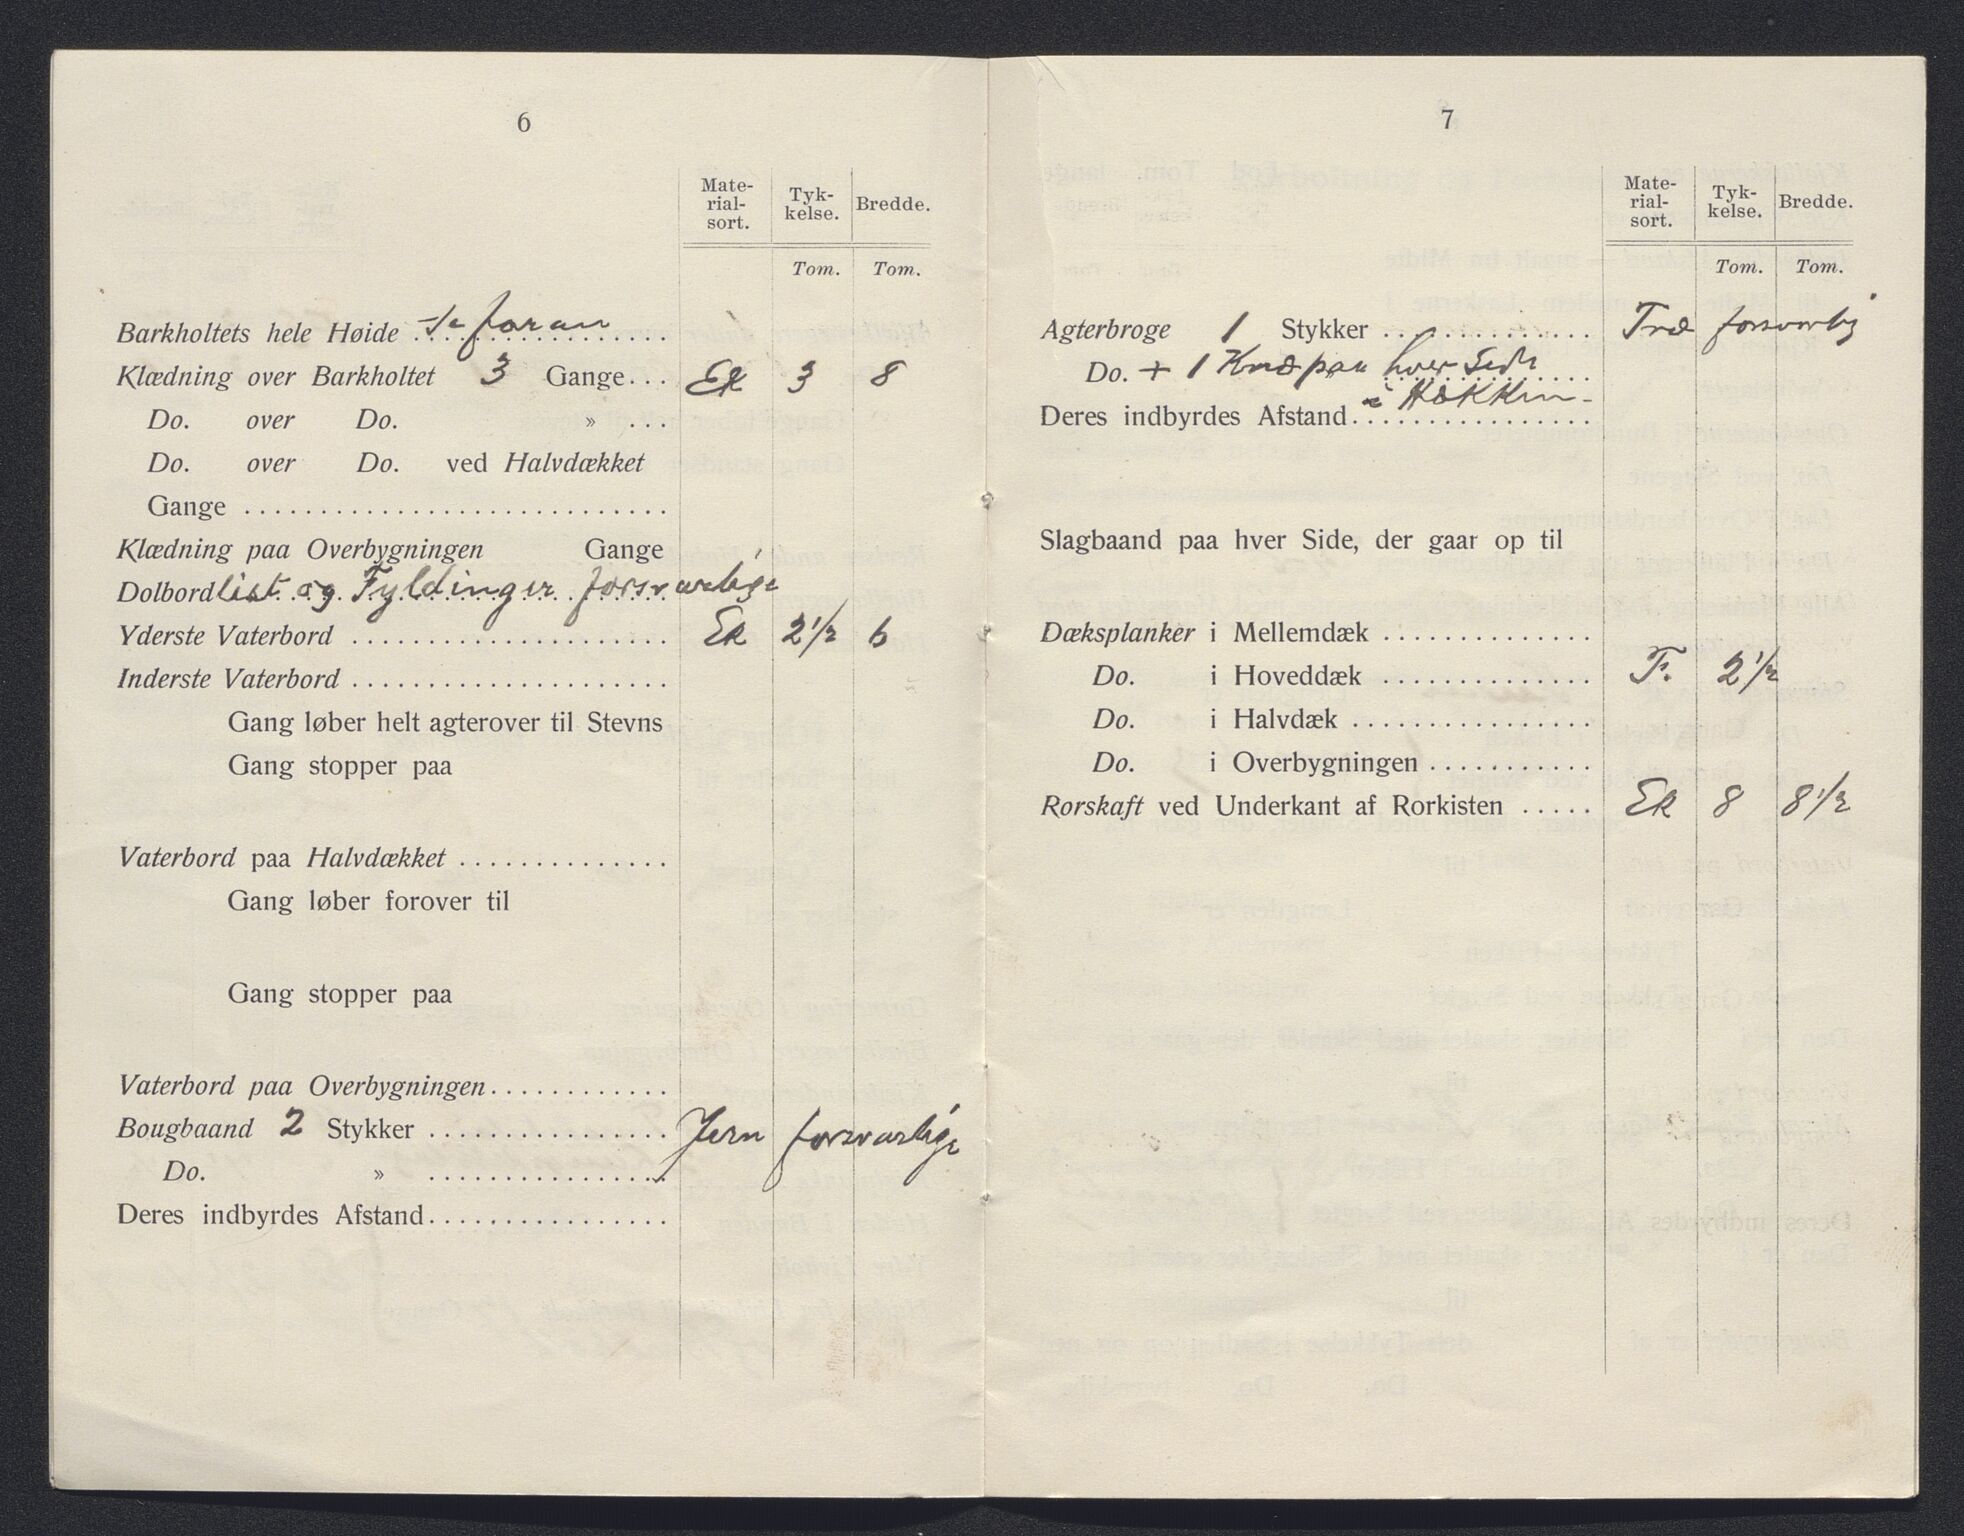 6
Mate-
rial-
sort.
Tyk-
kelse.
Bredde.
Tom. Tom.
Barkholtets hele Høide Se foran
Klædning over Barkholtet 3 Gange... Ek 3 8
Do. over Do. » ...
Do. over Do. ved Halvdækket
Gange ............................
Klædning paa Overbygningen Gange
Dolbord list og Fyldinger forsvarlige
Yderste Vaterbord ..................... Ek 2 1/2 6
Inderste Vaterbord .....................
Gang løber helt agterover til Stevns
Gang stopper paa
Vaterbord paa Halvdækket ..............
Gang løber forover til
Gang stopper paa
Vaterbord paa Overbygningen............
Bougbaand 2 Stykker ................ Jern forsvarlige
Do. » ................
Deres indbyrdes Afstand................
7
Mate-
rial-
sort.
Tyk-
kelse.
Bredde.
Tom. Tom.
Agterbroge 1 Stykker .............. Træ forsvarlig
Do. + 1 Knæ paa hver Side
i Hækken
Deres indbyrdes Afstand................
Slagbaand paa hver Side, der gaar op til
Dæksplanker i Mellemdæk ..............
Do. i Hoveddæk .............. F. 2 1/2
Do. i Halvdæk ................
Do. i Overbygningen ...........
Rorskaft ved Underkant af Rorkisten ..... Ek 8 8 1/2